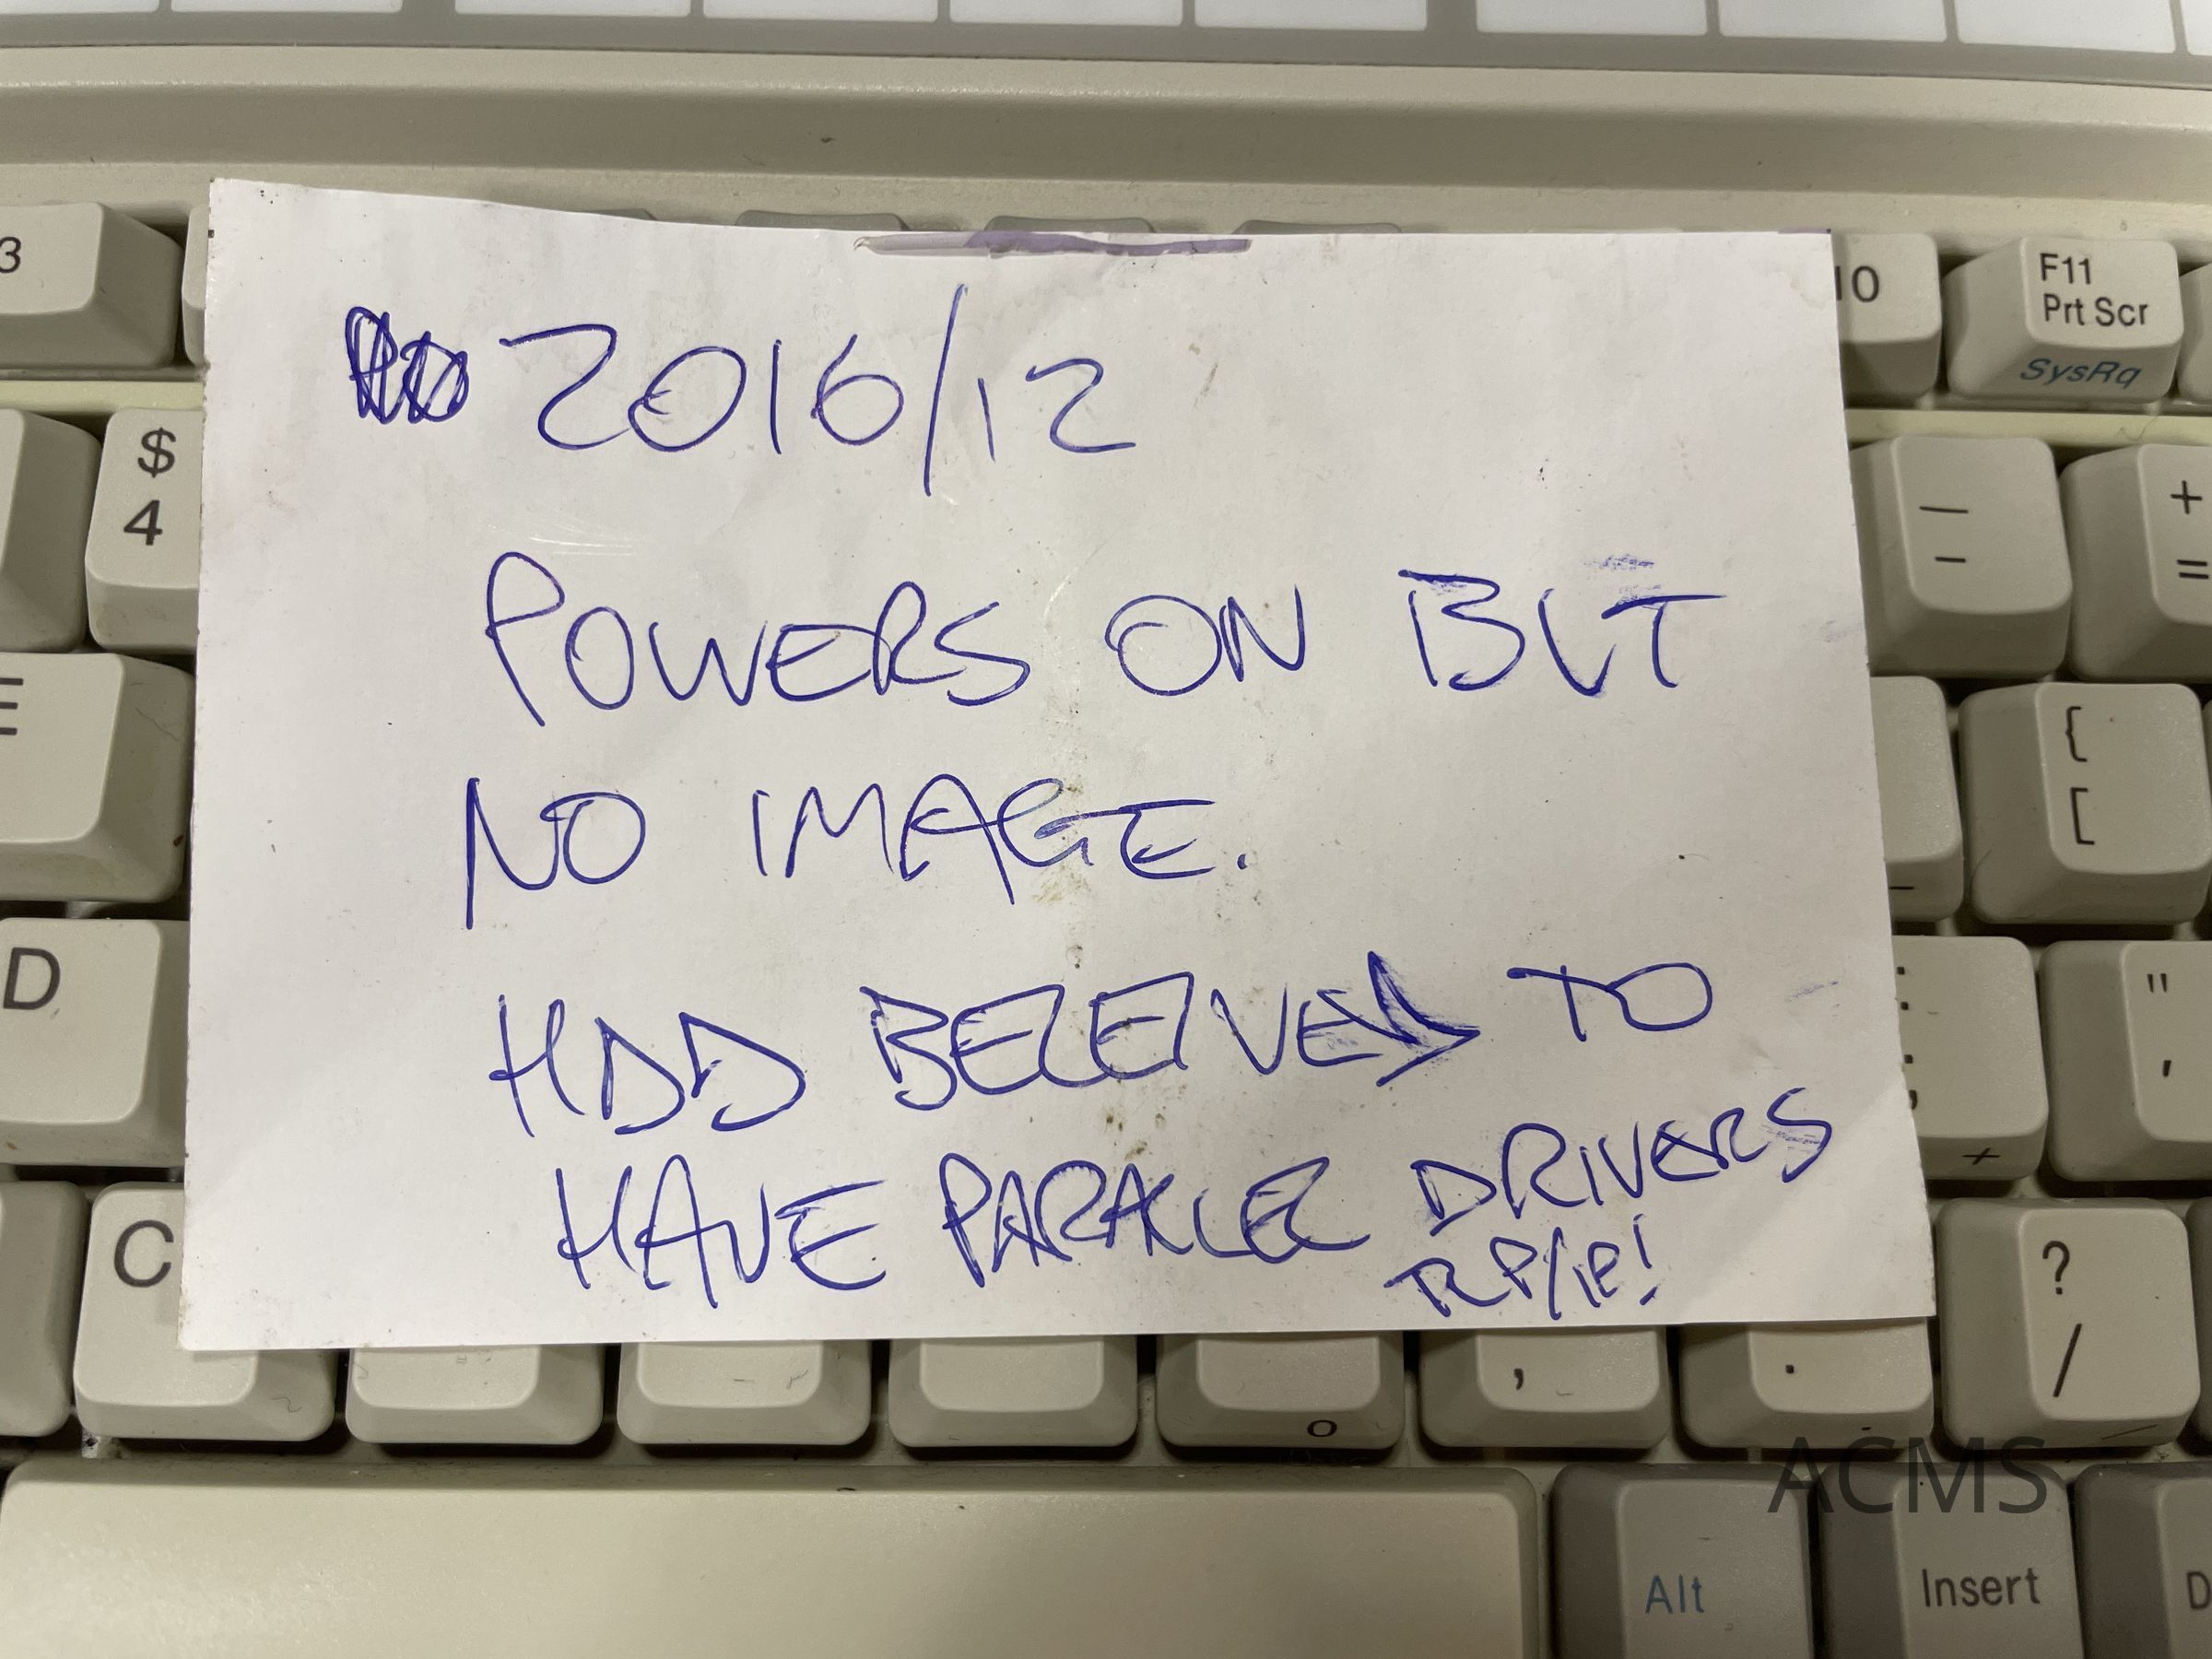 3
10
F11
Prt Scr
SysRq
2016/12
$
4
POWERS ON BUT
NO IMAGE.
HDD BELEIVED TO
HAVE PARALLEL DRIVERS
E
D
C
—
-
+
=
{
[
:
;
+
"
'
?
/
,
.
o
ACMS
Alt
Insert
D